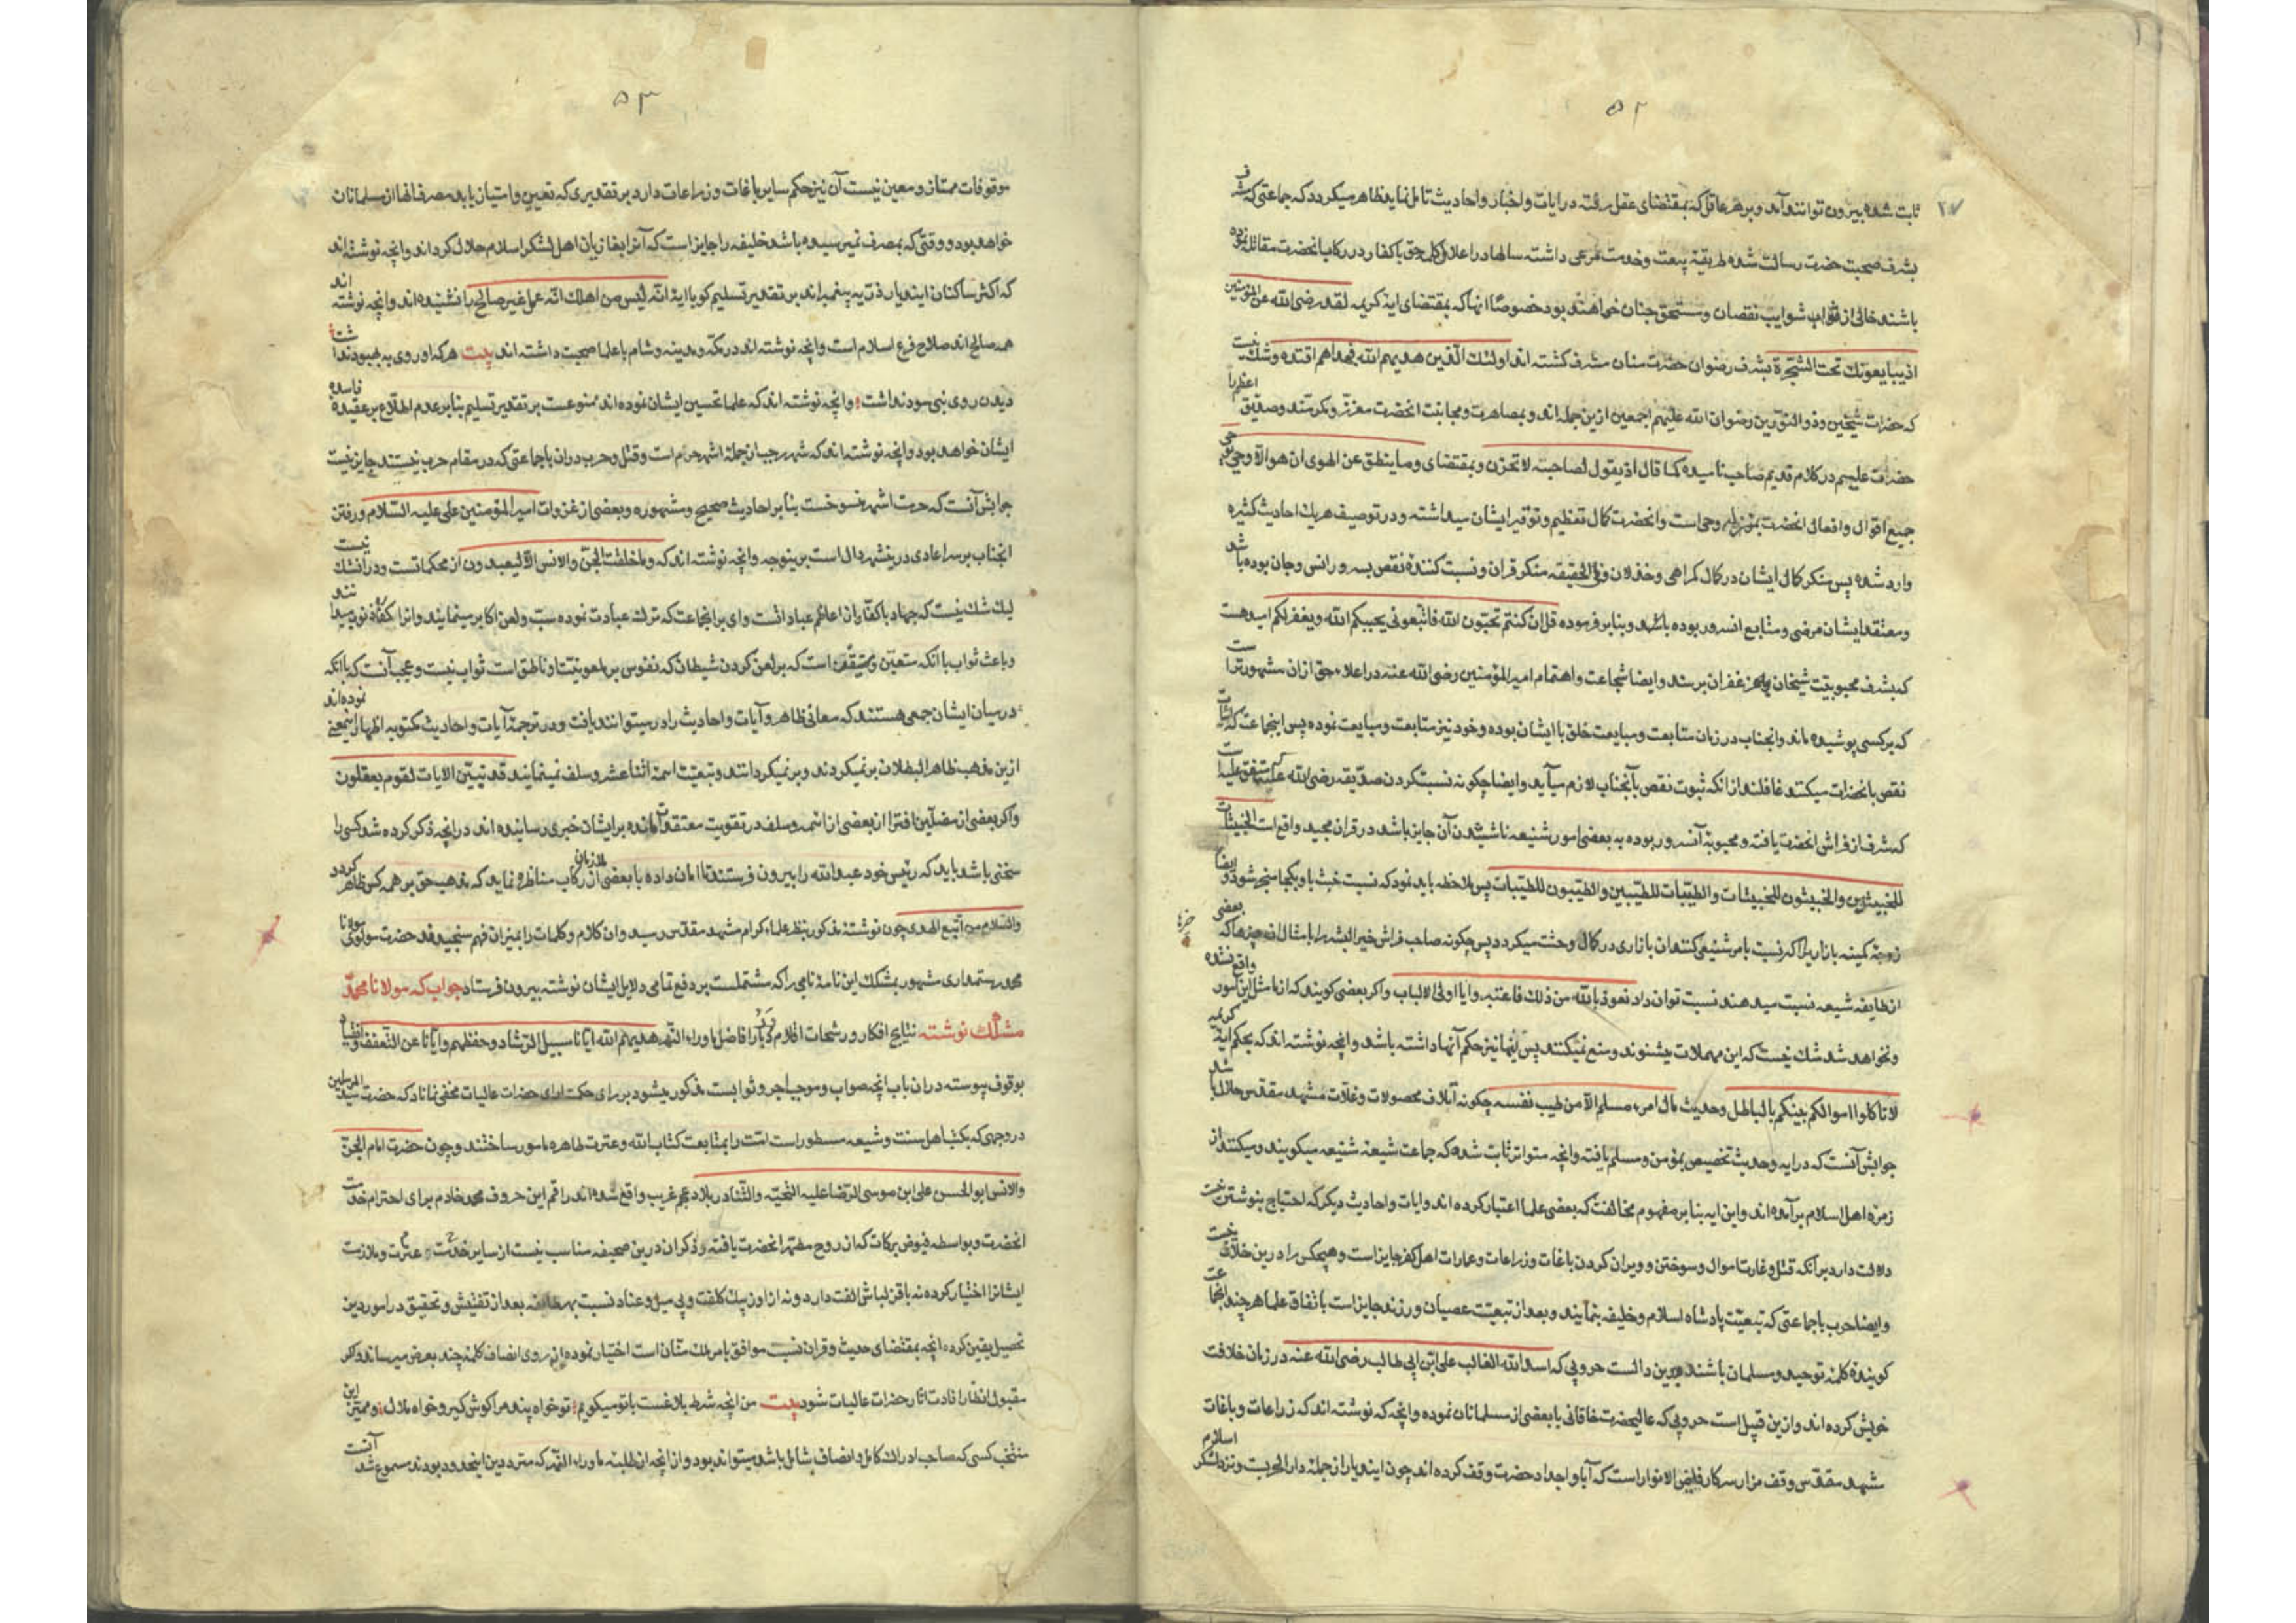 ۵۲
ثابت شده بیرون توانند آمد و بر هر عاقل که بمقتضای عقل رفته در ایات و اخبار و احادیث تامل نماید ظاهر میکردد که جماعتی که بشرف
بشرف صحبت حضرت رسالت شده طریقه بیعت و خدمت مرعی داشته سالها در اعلاء کلمه حق با کفار در رکاب انحضرت مقاتله نموده
باشند خالی از شوایب نقصان و مستحق جنان خواهند بود خصوصًا انها که بمقتضای ایه کریمه لقد رضی الله عن المؤمنین
اذ یبایعونک تحت الشجرة بشرف رضوان حضرت منان مشرف کشته اند اولئک الذین هدیهم الله فبهداهم اقتده و شک نیست
که حضرات شیخین و ذو النورین رضوان الله علیهم اجمعین ازین جمله اند و بمصاهرت و مجانبت انحضرت معزز و مکرمند و صدیق اعظم را
حضرت علیم در کلام قدیم صاحب نامیده کما قال اذ یقول لصاحبه لا تحزن و بمقتضای و ما ینطق عن الهوی ان هو الا وحی یوحی
جمیع اقوال و افعال انحضرت بموجب وحی است و انحضرت کمال تعظیم و توقیر ایشان میداشته و در توصیف هر یک احادیث کثیره
وارد شده پس منکر کمال ایشان در کمال کمراهی و خذلان و فی الحقیقه منکر قران و نسبت کننده نقص بسرور انس و جان بوده باشد
و معتقد ایشان مرضی و متابع انسرور بوده باشد و بنابر فرموده قل ان کنتم تحبون الله فاتبعونی یحببکم الله و یغفر لکم امید هست
که بشرف محبوبیت شیخان و غفران برسند و ایضا شجاعت و اهتمام امیر المؤمنین رضی الله عنه در اعلاء حق ازان مشهورتر است
که بر کسی پوشیده ماند و انجناب در زمان متابعت و مبایعت خلق با ایشان بوده و خود نیز متابعت و مبایعت نموده پس انجماعت که اثبات
نقص بانحضرات میکنند غافلند از انکه ثبوت نقص بآنجناب لازم میآید و ایضا چکونه نسبت کردن صدیقه رضی الله عنها
که شرف از فراش انحضرت یافته و محبوبه آنسرور بوده به بعضی امور شنیعه ناشی شدن آن جایز باشد در قران مجید واقع است الخبیثات
للخبیثین و الخبیثون للخبیثات و الطیبات للطیبین و الطیبون للطیبات پس ملاحظه باید نمود که نسبت خبث باو بکجا منجر شود و ایضا
زوجه کمینه بازاری را که نسبت بامر شنیعی کنند ان بازاری در کمال وحشت میکردد پس چکونه صاحب فراش خیر البشر را بامثال ان چیزها که بعضی
ازطایفه شیعه نسبت میدهند نسبت توان داد نعوذ بالله من ذلک فاعتبروا یا اولی الالباب و اکر بعضی کویند که از ما مثل این امور واقع نشده
و نخواهد شد شک نیست که این مهملات میشنوند و منع نمیکنند پس اینها نیز حکم آنها داشته باشد و انچه نوشته اند که بحکم ایه کریمه
لا تاکلوا اموالکم بینکم بالباطل و حدیث مال امرء مسلم الا من طیب نفسه چکونه اتلاف محصولات و غلات مشهد مقدس حلال باشد
جوابش آنست که در ایه و حدیث تخصیص بمؤمن و مسلم یافته و انچه متواتر ثابت شده که جماعت شیعه شنیعه میکویند و میکنند از
زمره اهل اسلام برآمده اند و این ایه بنابر مفهوم مخالفت که بعضی علما اعتبار کرده اند و ایات و احادیث دیکر که احتیاج بنوشتن نیست
دلالت دارد بر آنکه قتل و غارت اموال و سوختن و ویران کردن باغات و زراعات و عمارات اهل کفر جایز است و هیچکس را درین خلاف نیست
و ایضا حرب با جماعتی که تبعیت پادشاه اسلام و خلیفه ننمایند و بعد از تبعیت عصیان ورزند جایز است باتفاق علما هر چند انجماعت
کوینده کلمه توحید و مسلمان باشند و برین دال است حروبی که اسد الله الغالب علی ابن ابی طالب رضی الله عنه در زمان خلافت
خویش کرده اند و ازین قبیل است حروبی که عالیحضرت خاقانی با بعضی از مسلمانان نموده و انچه که نوشته اند که زراعات و باغات
مشهد مقدس وقف مزار سرکار فایض الانوار است که آبا و اجداد حضرت وقف کرده اند چون این دیار از جمله دار الحربست و نزد لشکر اسلام
۵۳
موقوفات ممتاز و معین نیست آن نیز حکم سایر باغات و زراعات دارد بر تقدیری که تعیین و امتیاز یابد مصرف انها از مسلمانان
خواهد بود و وقتی که بمصرف نمیرسیده باشد خلیفه را جایز است که آنرا بغازیان اهل لشکر اسلام حلال کرداند و انچه نوشته اند
که اکثر ساکنان این دیار ذریه پیغمبراند بر تقدیر تسلیم کویا ایه انه لیس من اهلک انه عمل غیر صالح را نشنیده اند و انچه نوشته اند
همه صالح اند صلاح فرع اسلام است و انچه نوشته اند در مکه و مدینه و شام با علما صحبت داشته اند بیت هر که او روی به بهبود نداشت
دیدن روی نبی سود نداشت و انچه نوشته اند که علما تحسین ایشان نموده اند ممنوعست بر تقدیر تسلیم بنا بر عدم اطلاع بر عقیده فاسده
ایشان خواهد بود و انچه نوشته اند که شهر رجب از جمله اشهر حرم است و قتل و حرب دران با جماعتی که در مقام حرب نیستند جایز نیست
جوابش آنست که حرمت اشهر منسوخست بنا بر احادیث صحیح و مشهوره و بعضی از غزوات امیر المؤمنین علی علیه السلام و رفتن
انجناب بر سر اعادی درین شهر دال است برینوجه و انچه نوشته اند که و ما خلقت الجن و الانس الا لیعبدون از محکماتست و در آنشک نیست
لیک شک نیست که جهاد با کفار از اعاظم عباداتست وای بر انجماعت که ترک عبادت نموده سب و لعن اکابر مینمایند و انرا
و باعث ثواب با انکه متعین و متیقن است که بر لعن کردن شیطان که نفوس بر ملعونیت او ناطق است ثواب نیست و عجب آنست که با انکه
در میان ایشان جمعی هستند که معانی ظاهر و آیات و احادیث را در میتوانند یافت و در ترجمه آیات و احادیث مکتوبه اظهار اینمعنی نموده اند
ازین مذهب ظاهر البطلان بر نمیکردند و بر نمیکردانند و تبعیت ائمه اثنا عشر و سلف نمینمایند قد تبین الایات لقوم یعقلون
و اکر بعضی از مضلین افترا از بعضی از ائمه و سلف در تقویت معتقدات مانده بر ایشان خبری رسانیده اند در انچه ذکر کرده شد کسی را
سخنی باشد باید که رئیس خود عبد الله را بیرون فرستند تا امان داده با بعضی از ملازمان رکاب مناظره نماید که مذهب حق بر همه کس ظاهر کردد
والسلام من اتبع الهدی چون نوشته مذکور بنظر علماء کرام مشهد مقدس رسید و ان کلام و کلمات را بمیزان فهم سنجیدند حضرت مولوی مولانا
محمد رستمداری مشهور بمشکک این نامه نامی را که مشتملست بر دفع تمامی دلایل ایشان نوشته بیرون فرستاد جواب که مولانا محمد
مشکک نوشته نتایج افکار و رشحات اقلام اکابر افاضل ماوراء النهر هدیهم الله ایانا سبیل الرشاد و حفظهم و ایانا عن التعفف
بوقوف پیوسته دران باب انچه صواب و موجب اجر و ثوابست مذکور میشود بر رای حکمت ارای حضرات عالیات مخفی نماناد که حضرت سید المرسلین
در وجهی که بکتب اهل سنت و شیعه مسطور است امت را بمتابعت کتاب الله و عترت طاهره مامور ساختند و چون حضرت امام الجن
والانس ابو الحسن علی ابن موسی الرضا علیه التحیه و الثنا در بلاد عجم غریب واقع شده اند راقم این حروف محمد خادم برای احترام خدمت
انحضرت و بواسطه فیوض برکات که از روح مطهر انحضرت یافته و ذکر ان درین صحیفه مناسب نیست از سایر خدمت عترت و ملازمت
ایشانرا اختیار کرده نه با قزلباش الفت دارد و نه از اوزبک کلفت و بی میل و عناد نسبت بهر طایفه بعد از تفتیش و تحقیق در امور دین
تحصیل یقین کرده انچه بمقتضای حدیث و قران نسبت موافق بامر ملک منان است اختیار نموده از روی انصاف کلمه چند بعرض میرساند که
مقبول انظار افادت اثار حضرات عالیات شود بیت من انچه شرط بلاغست با تو میکویم تو خواه پند مرا کوش کیر و خواه ملال و ممیز این
منتخب کسی که صاحب ادراک کامل و انصاف شامل باشد میتواند بود و از انچه از طلبه ماوراء النهر که متردد دین اینحدود بودند مسموع شد آنست